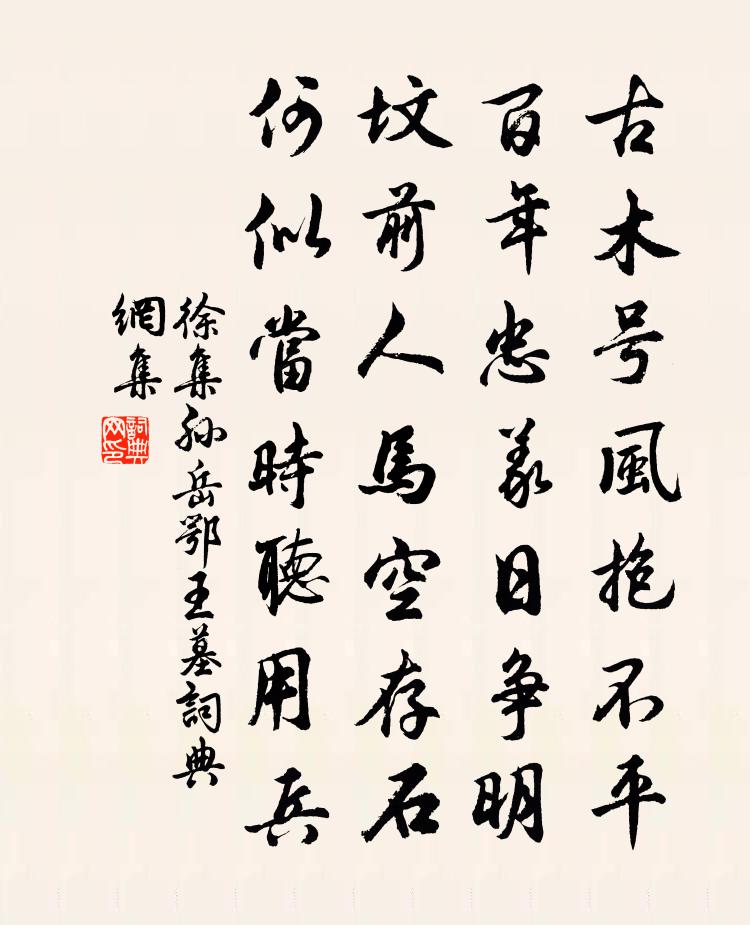 古木号風抱不平
百年忠義日争明
坟前人馬空存石
何似當時聽用兵
徐集孙岳鄂王墓詞典
網集
詞典
网印